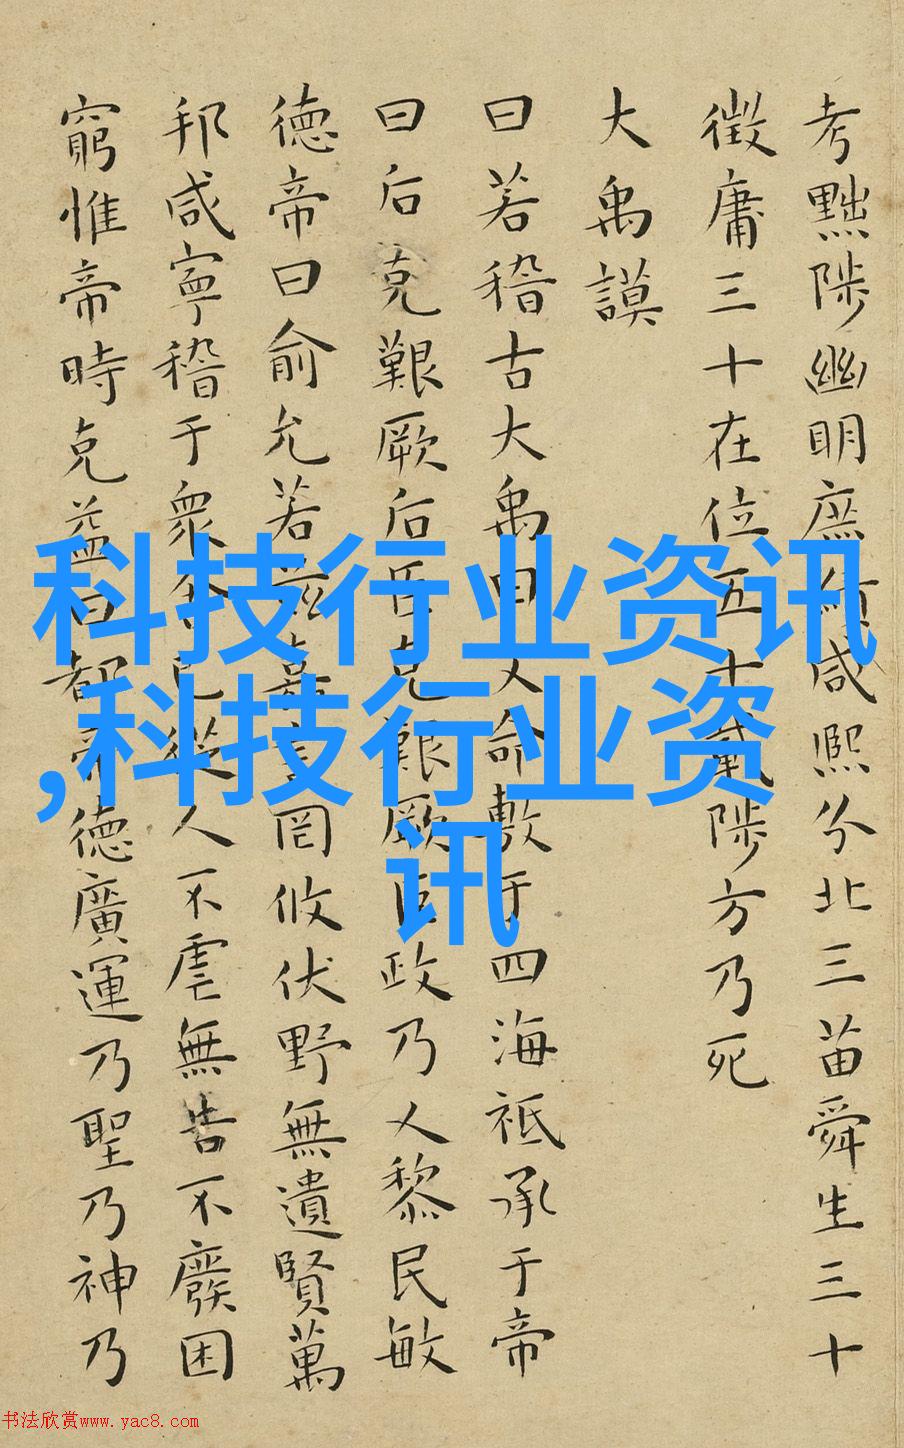 考黜陟幽明庶績咸熙分北三苗舜生三十
徵庸三十在位五十載陟方乃死
大禹謨
曰若稽古大禹曰文命敷于四海祗承于帝
曰后克艱厥后臣克艱厥臣政乃乂黎民敏
德帝曰俞允若茲嘉言罔攸伏野無遺賢萬
邦咸寧稽于眾舍己從人不虐無告不廢困
窮惟帝時克益曰都帝德廣運乃聖乃神乃
科技行业资讯
,科技行业资
讯
书法欣赏www.yac8.com